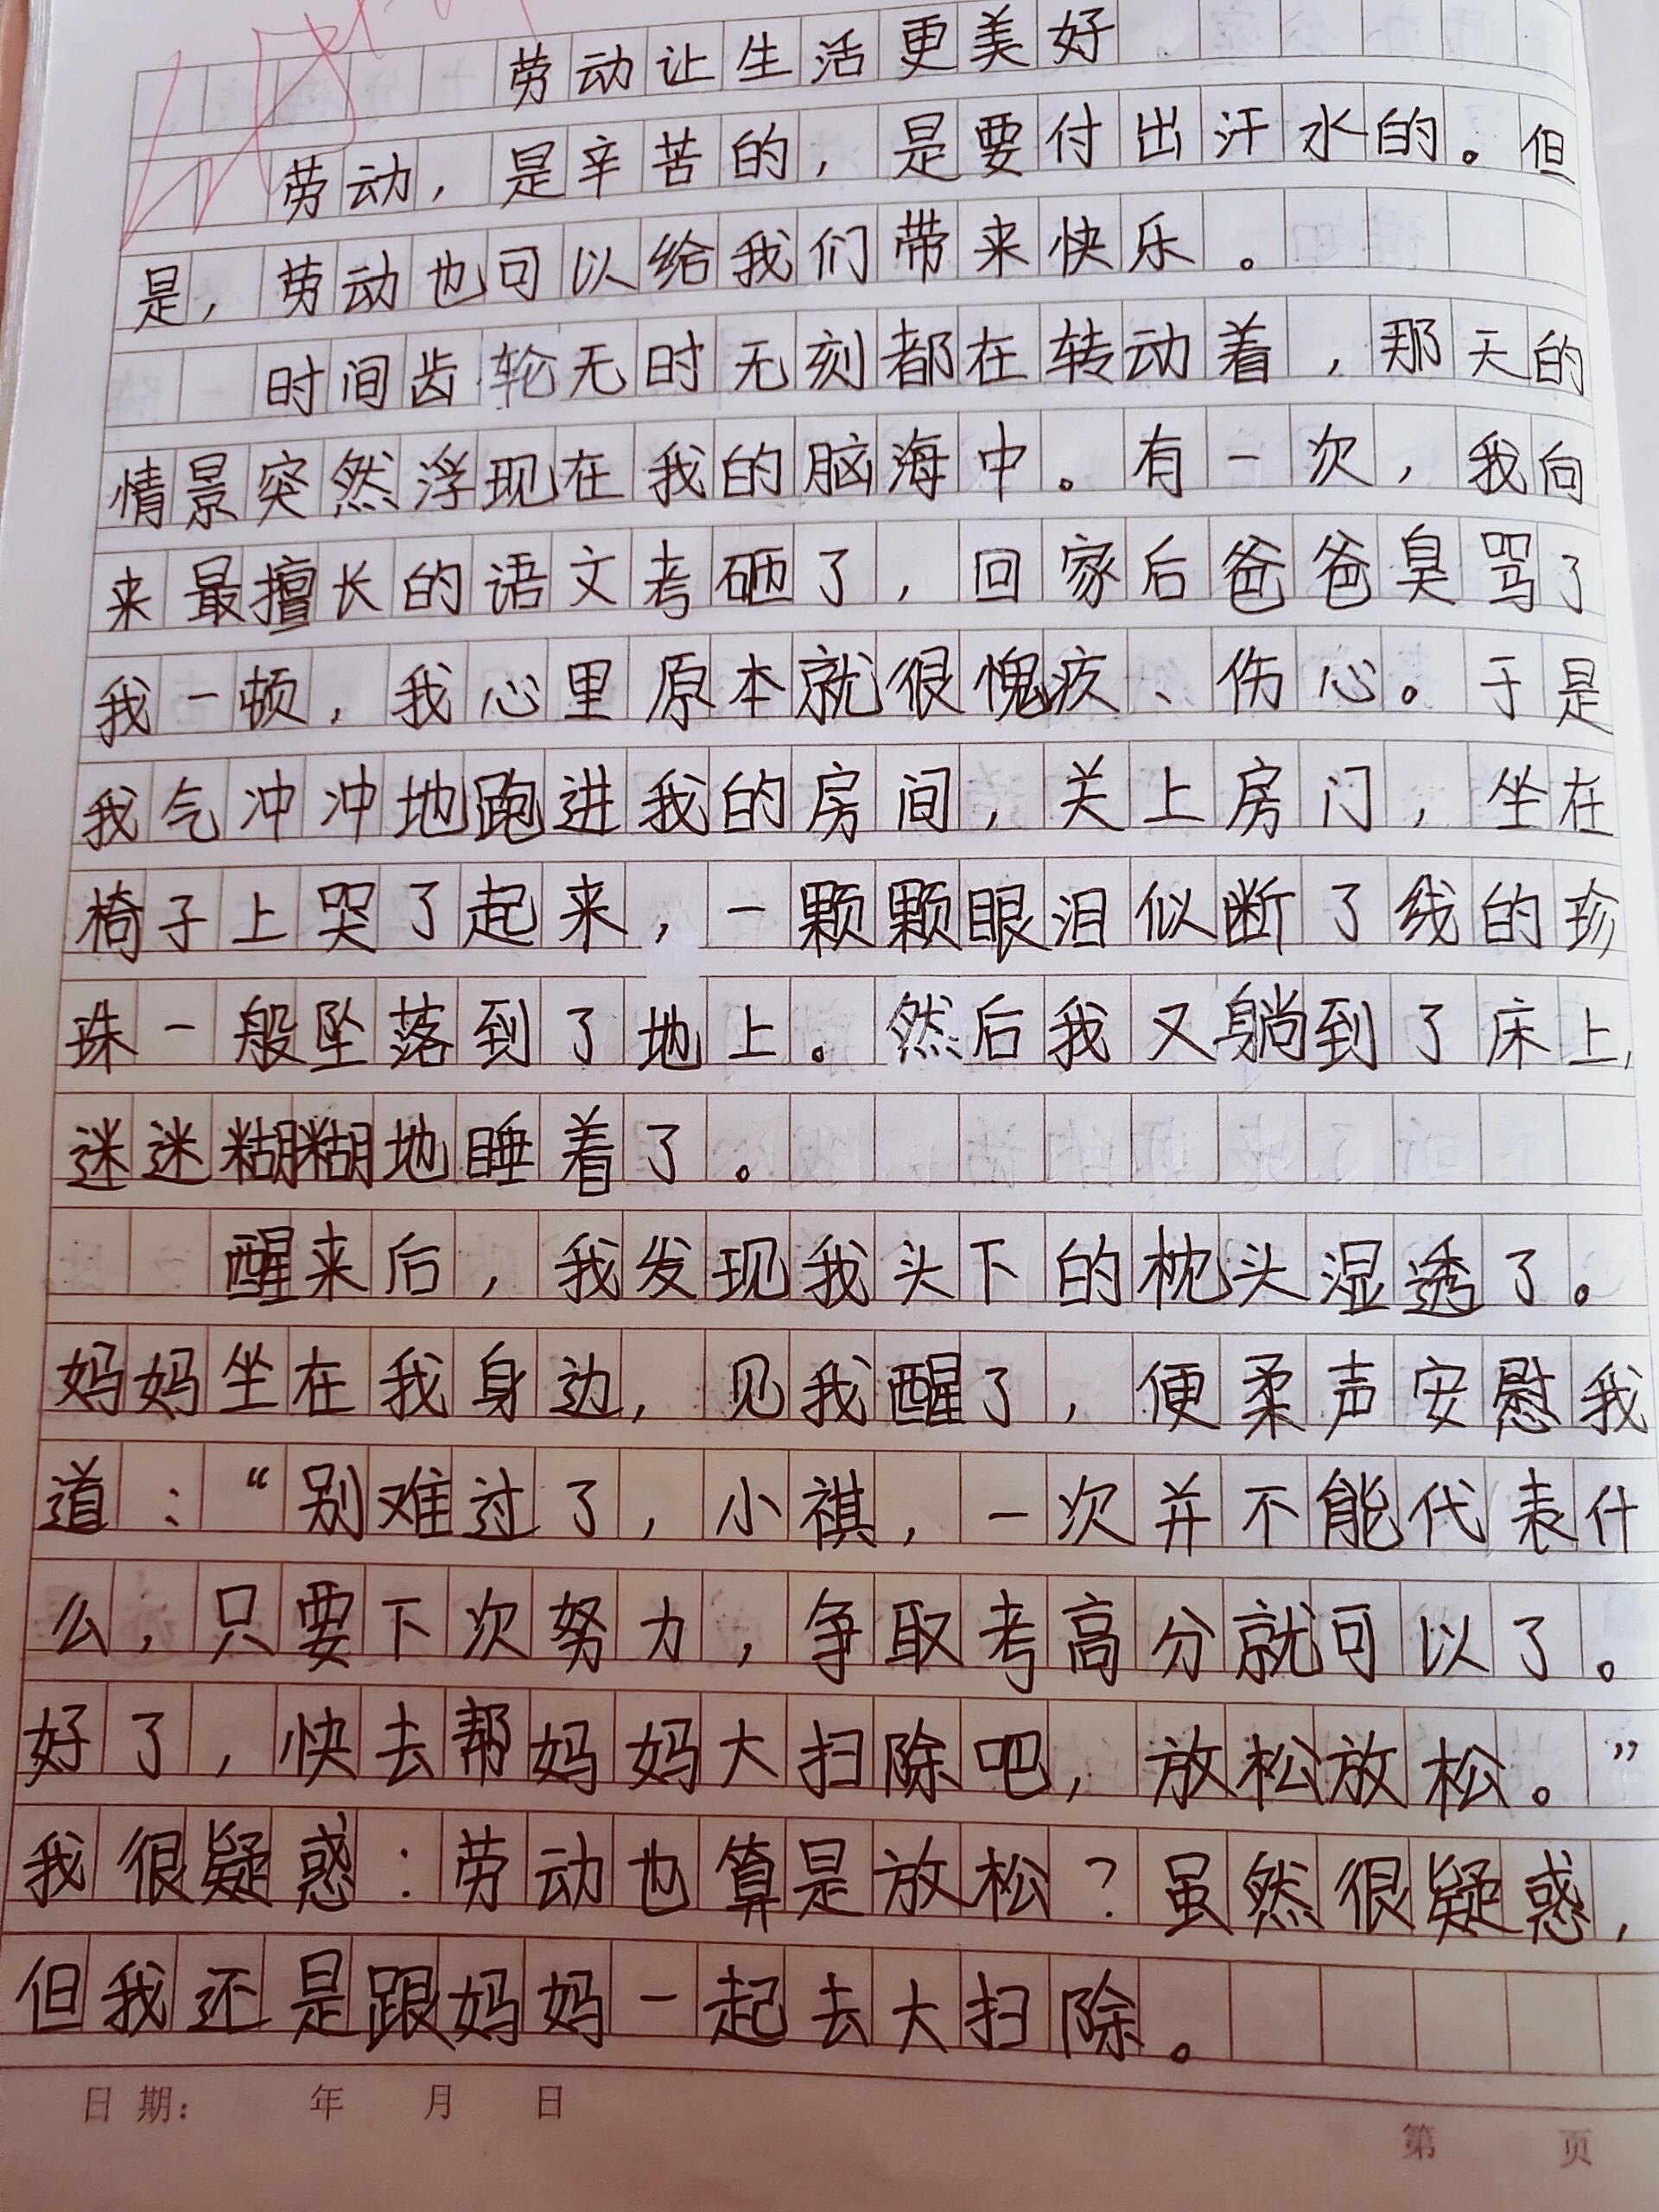 劳动让生活更美好
劳动，是辛苦的，是要付出汗水的。但
是，劳动也可以给我们带来快乐。
时间齿轮无时无刻都在转动着，那天的
情景突然浮现在我的脑海中。有一次，我向
来最擅长的语文考砸了，回家后爸爸臭骂了
我一顿，我心里原本就很愧疚、伤心。于是
我气冲冲地跑进我的房间，关上房门，坐在
椅子上哭了起来，一颗颗眼泪似断了线的珍
珠一般坠落到了地上。然后我又躺到了床上，
迷迷糊糊地睡着了。
醒来后，我发现我头下的枕头湿透了。
妈妈坐在我身边，见我醒了，便柔声安慰我
道：“别难过了，小祺，一次并不能代表什
么，只要下次努力，争取考高分就可以了。
好了，快去帮妈妈大扫除吧，放松放松。”
我很疑惑：劳动也算是放松？虽然很疑惑，
但我还是跟妈妈一起去大扫除。
日期： 年 月 日
第 页